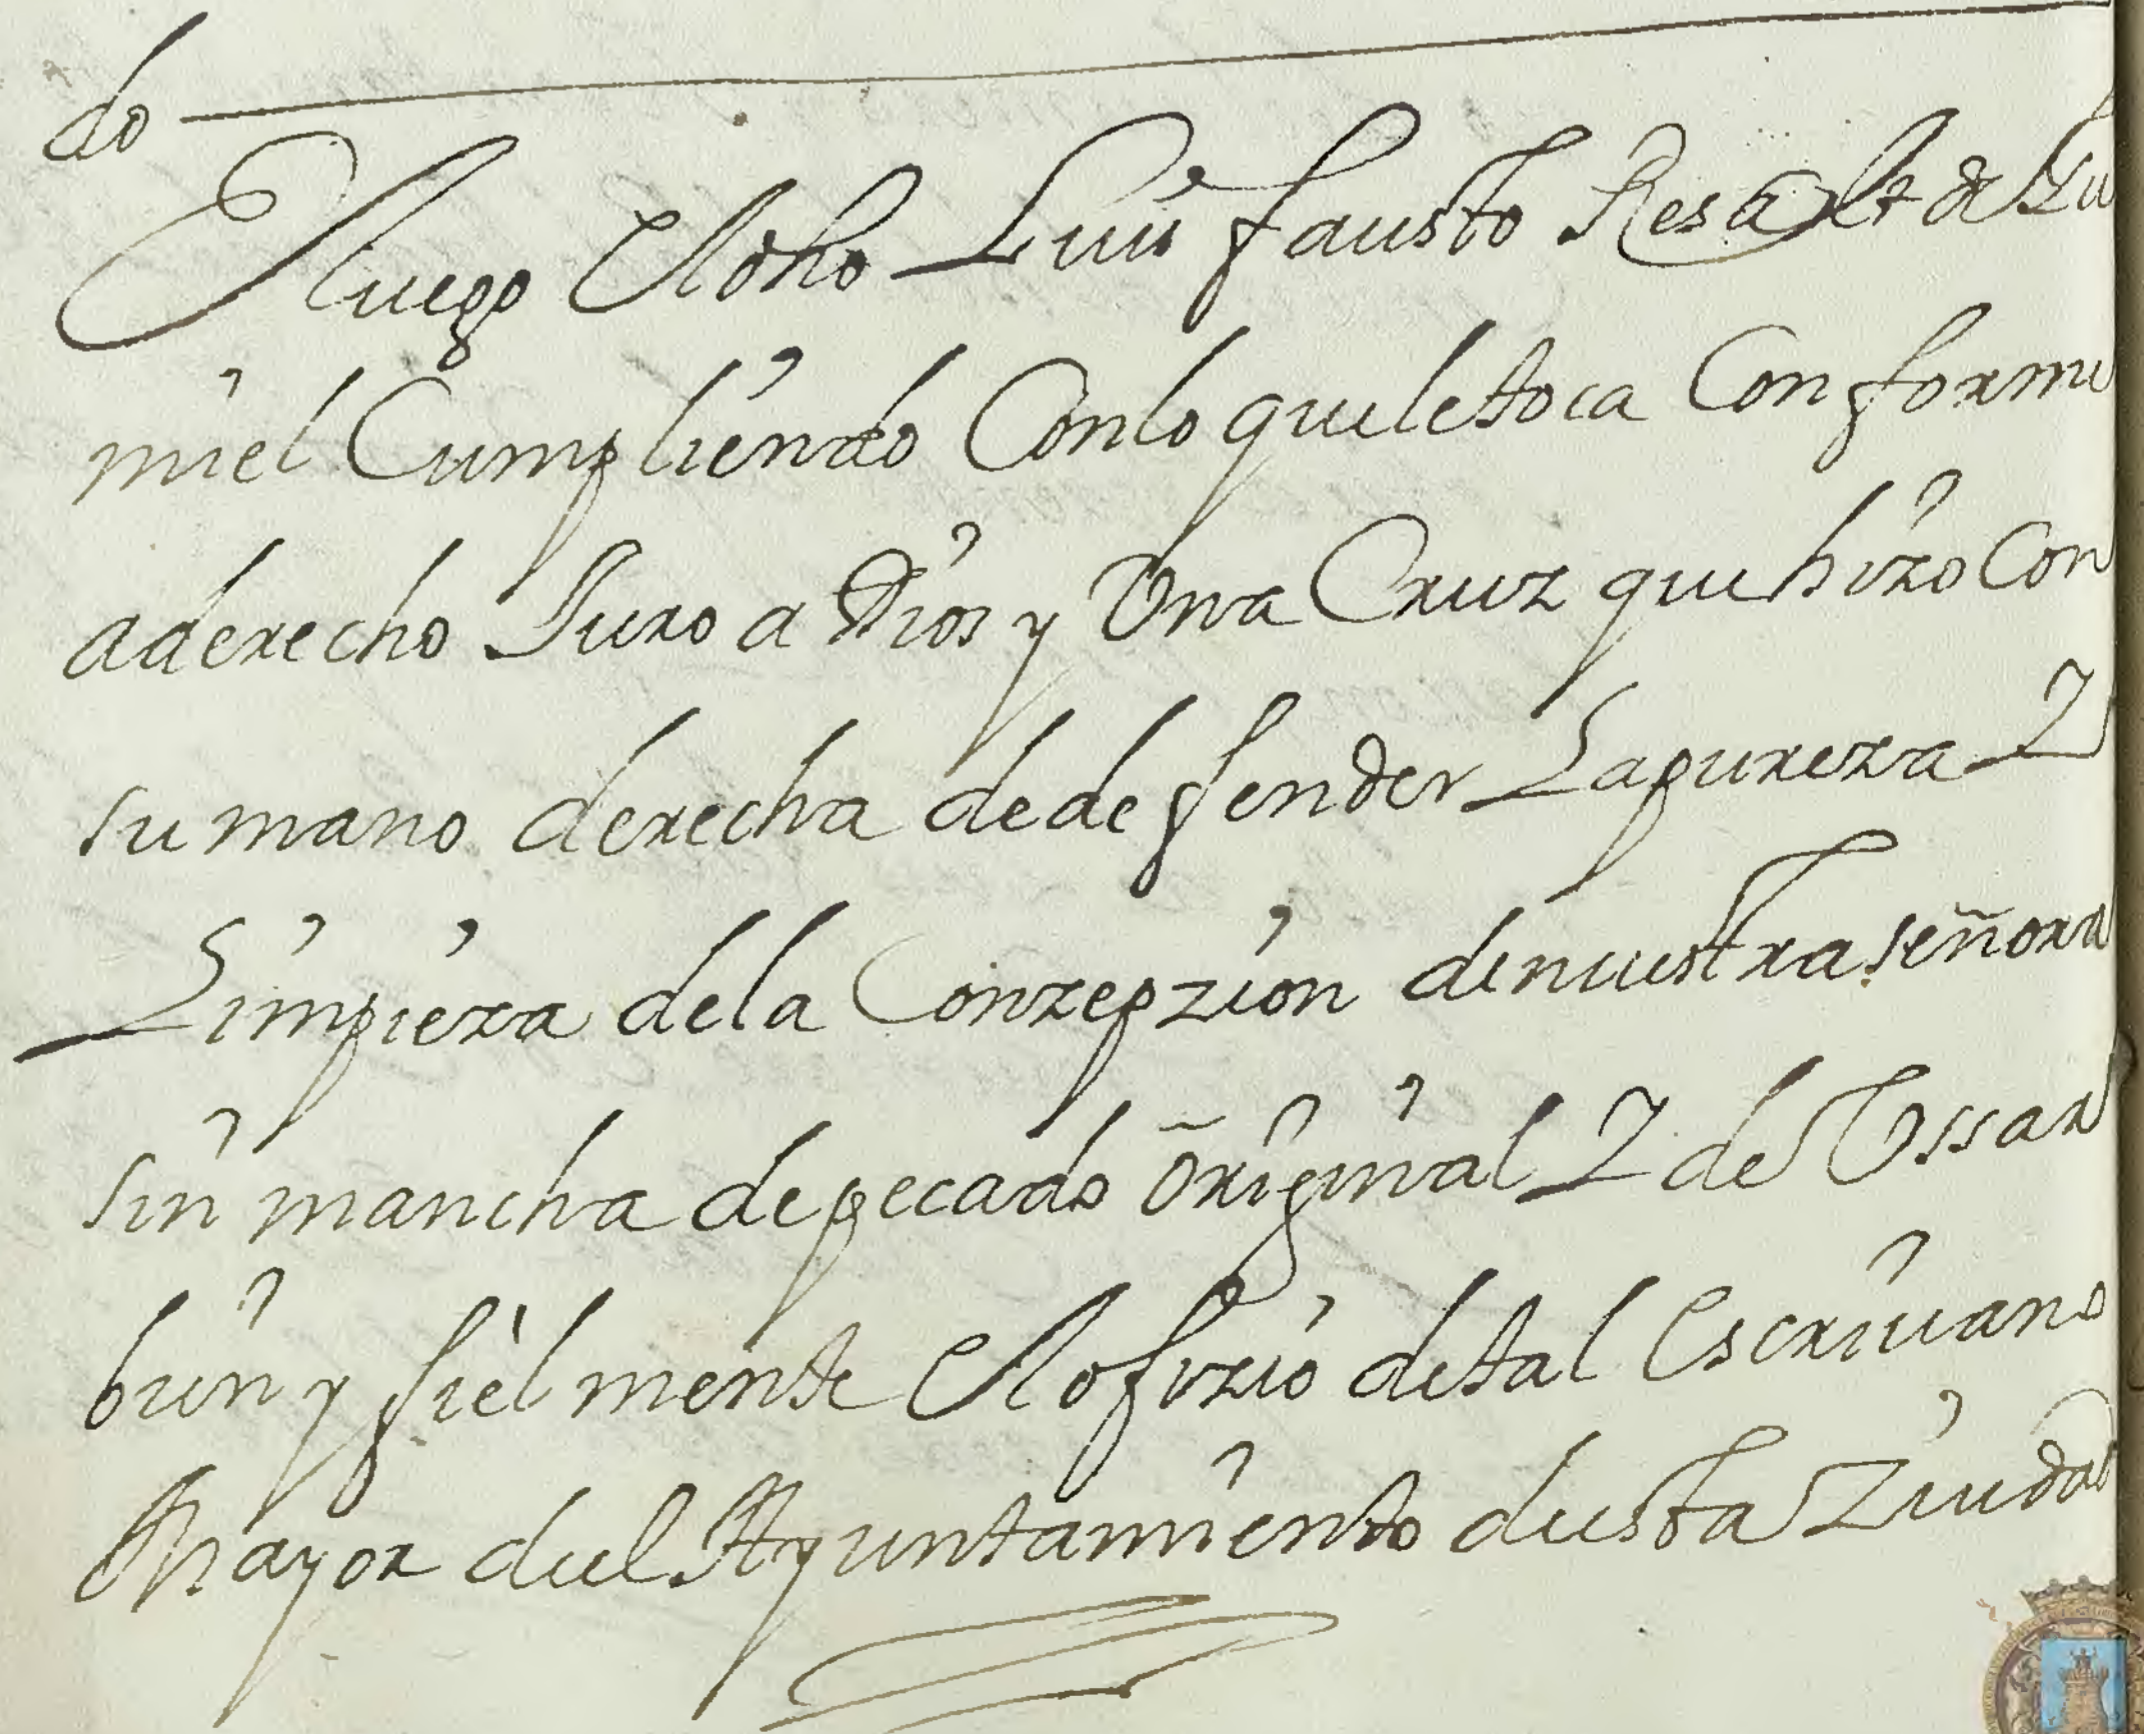 do
E luego El dho Luis fausto Resalt de Lu
miel Cumpliendo Con lo que le toca Conforme
a derecho Juro a Dios y Vna Cruz que hizo Con
su mano derecha de defender La pureza Y
Limpieza de la Conzepzion de nuestra señora
sin mancha de pecado original Y de Vssar
bien y fielmente El ofizio de tal Escriuano
Mayor del Ayuntamiento desta Ziudad